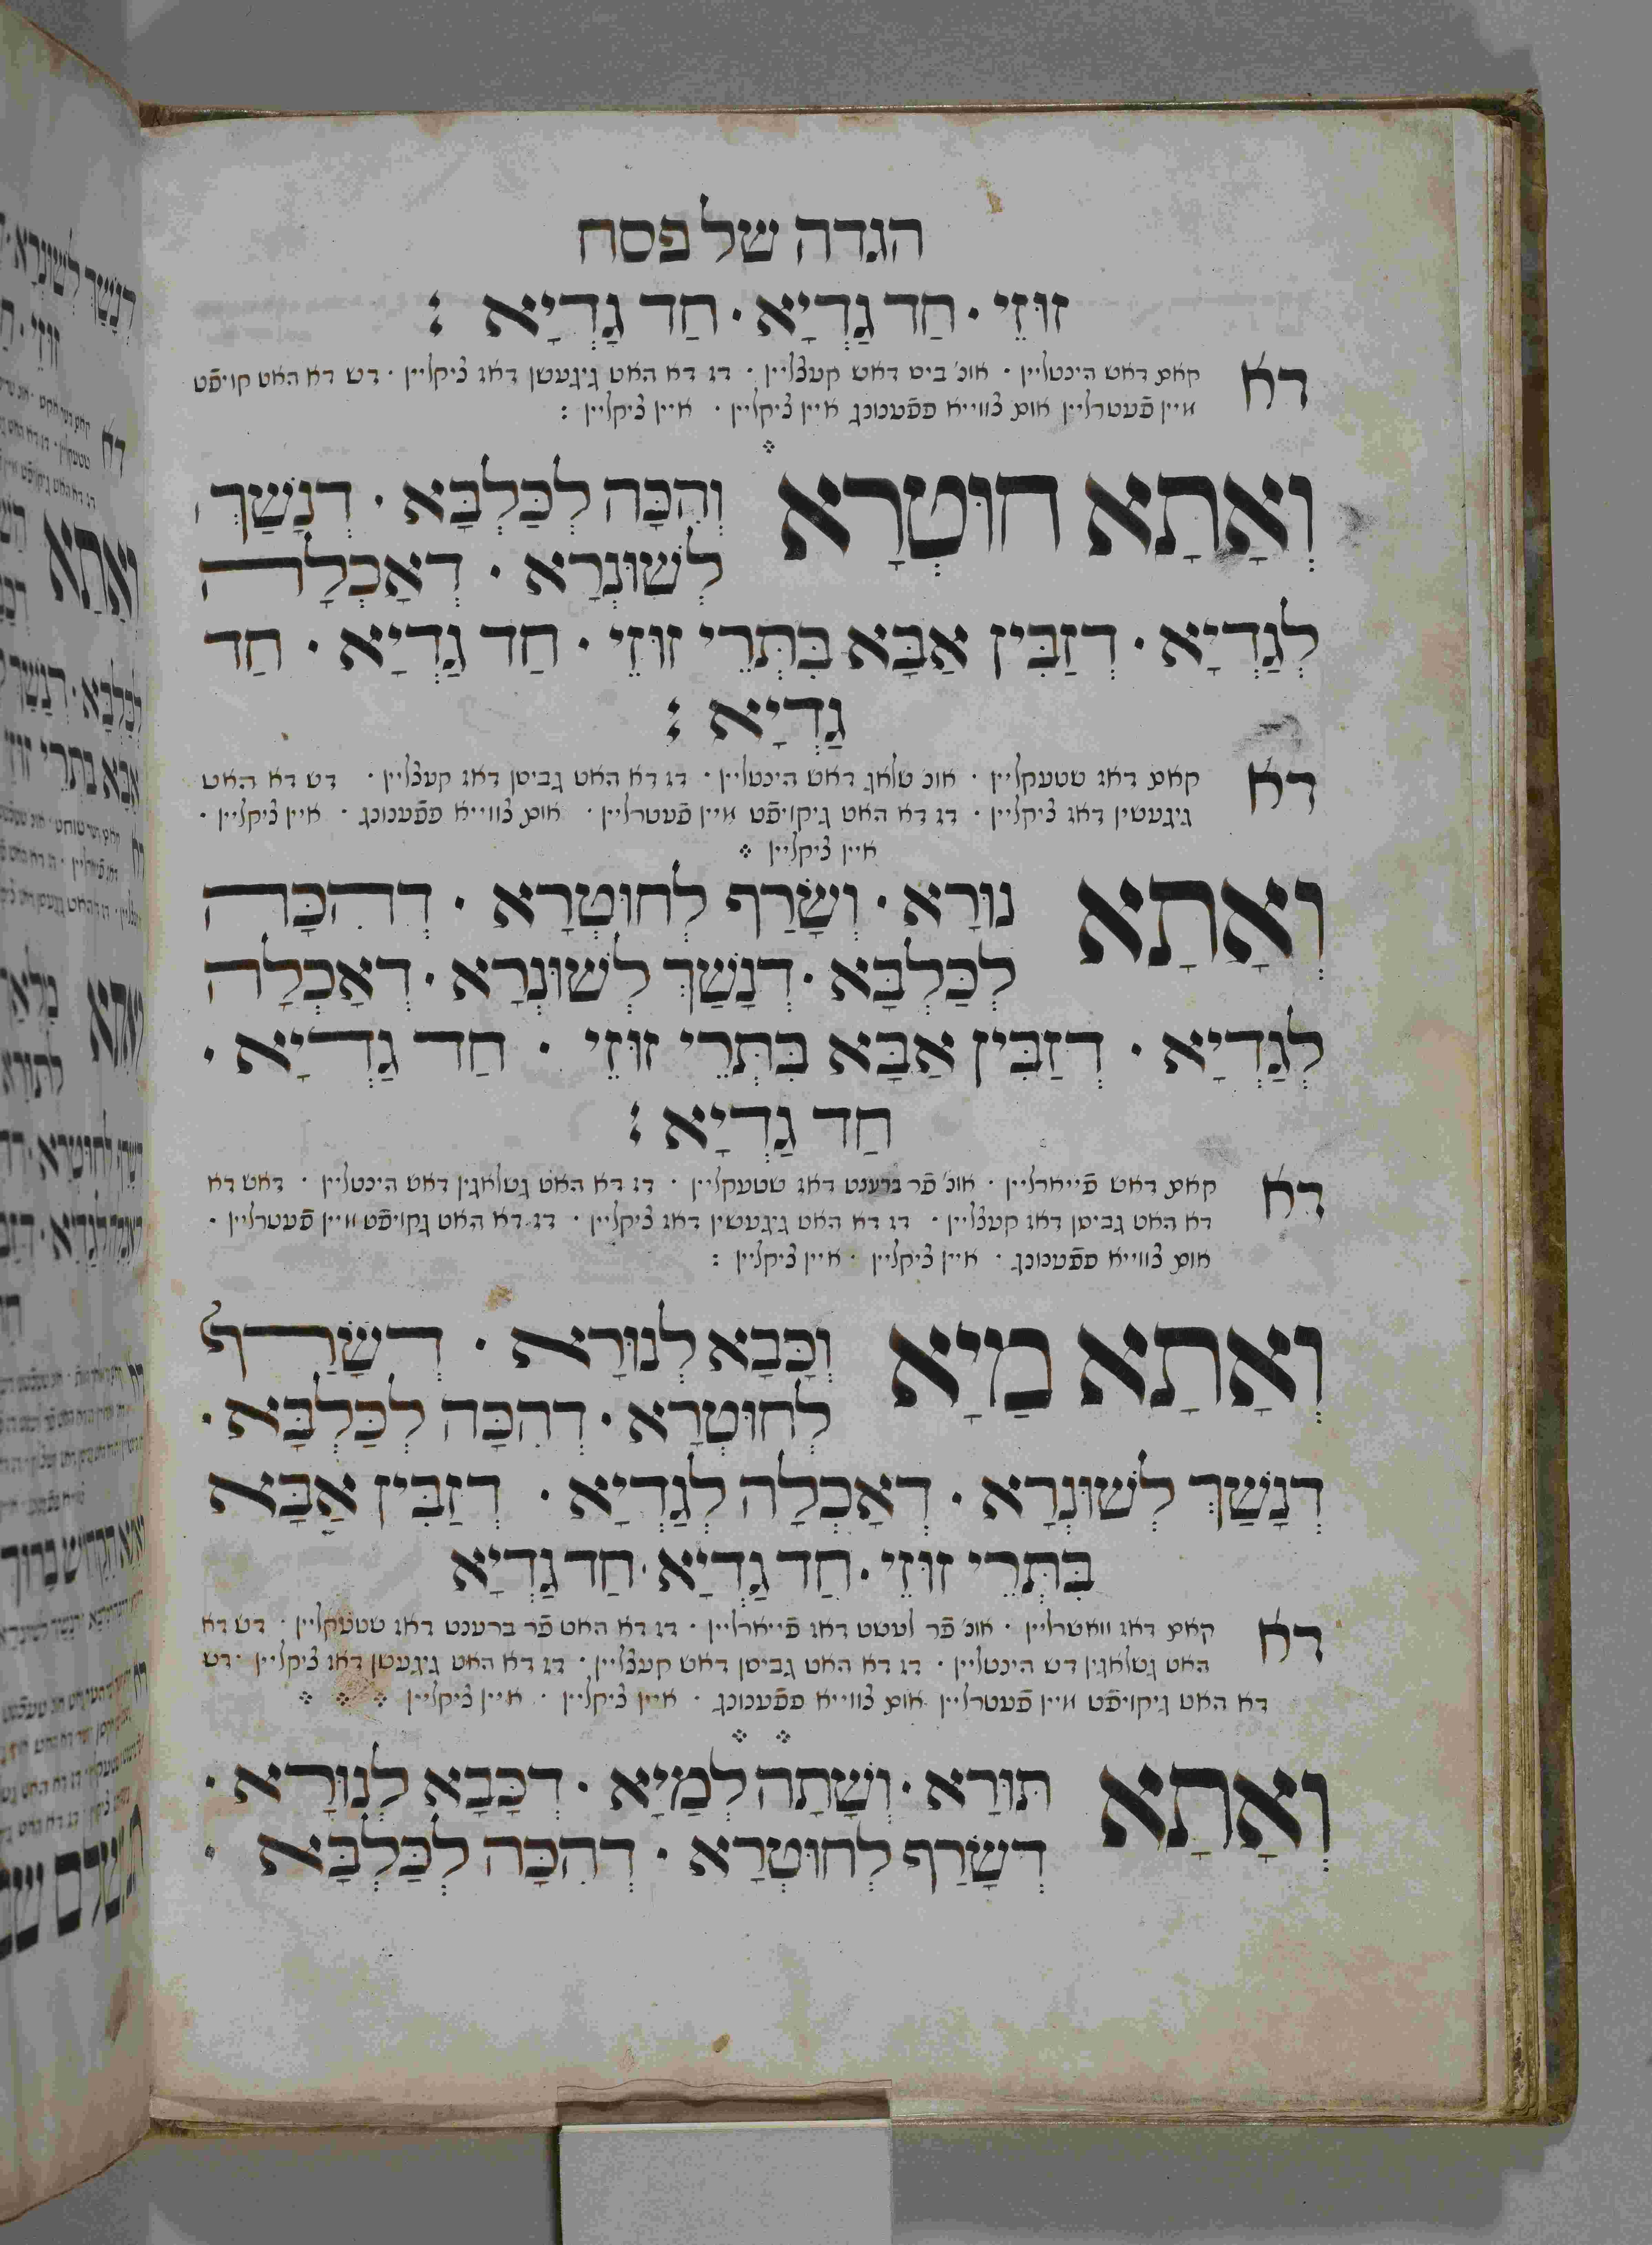 הגדה של פסח
זוּזֵי · חַד גַדְיָא · חַד גַדְיָא :
דא קאם דאש הינטליין · אונ' ביס דאש קעצליין · דז דא האט גיגעסן דאז ציקליין · דש דא האט קויפֿט
מיין פֿעטרליין אום צווייא פפֿענונג איין ציקליין · איין ציקליין :
וְאָתָא חוּטְרָא וְהִכָּה לְכַּלְבָּא · דְנָשַׁךְ
לְשׁוּנְרָא · דְאָכְלָה
לְגַדְיָא · דְזַבִּין אַבָּא בִּתְּרֵי זוּזֵי · חַד גַדְיָא · חַד
גַדְיָא :
דא קאם דאז שטעקליין · אונ שלאג דאש הינטליין · דז דא האט גביסן דאז קעצליין · דש דא האט
גיגעסין דאז ציקליין · דז דא האט גיקויפֿט מיין פֿעטרליין · אום צווייא פפֿענונג · איין ציקליין ·
איין ציקליין
וְאָתָא נוּרָא · וְשָׂרַף לְחוּטְרָא · דְהִכָּה
לְכַּלְבָּא · דְנָשַׁךְ לְשׁוּנְרָא · דְאָכְלָה
לְגַדְיָא · דְזַבִּין אַבָּא בִּתְּרֵי זוּזֵי · חַד גַדְיָא ·
חַד גַדְיָא :
דא קאם דאש פֿייארליין · אונ' פֿר ברענט דאז שטעקליין · דז דא האט גשלאגין דאש הינטליין · דאש דא
דא האט גביסן דאז קעצליין · דז דא האט גיגעסין דאז ציקליין · דז דא האט גקויפֿט מיין פֿעטרליין ·
אום צווייא פפֿענונג · איין ציקליין · איין ציקליין :
וְאָתָא מַיָא וְכָּבָא לְנוּרָא · דְשָׂרַף
לְחוּטְרָא · דְהִכָּה לְכַּלְבָּא ·
דְנָשַׁךְ לְשׁוּנְרָא · דְאָכְלָה לְגַדְיָא · דְזַבִּין אַבָּא
בִּתְּרֵי זוּזֵי · חַד גַדְיָא · חַד גַדְיָא
דא קאם דאז וואשרליין · אונ' פֿר לעשט דאז פֿייארליין · דז דא האט פֿר ברענט דאז שטעקליין · דש דא
האט גשלאגין דש הינטליין · דז דא האט גביסן דאש קעצליין · דז דא האט גיגעסן דאז ציקליין · דש
דא האט גיקויפֿט מיין פֿעטרליין אום צווייא פפֿענונג · איין ציקליין · איין ציקליין
וְאָתָא תּוּרָא · וְשָׁתָה לְמַיָא · דְכָּבָא לְנוּרָא ·
דְשָׂרַף לְחוּטְרָא · דְהִכָּה לְכַּלְבָּא ·